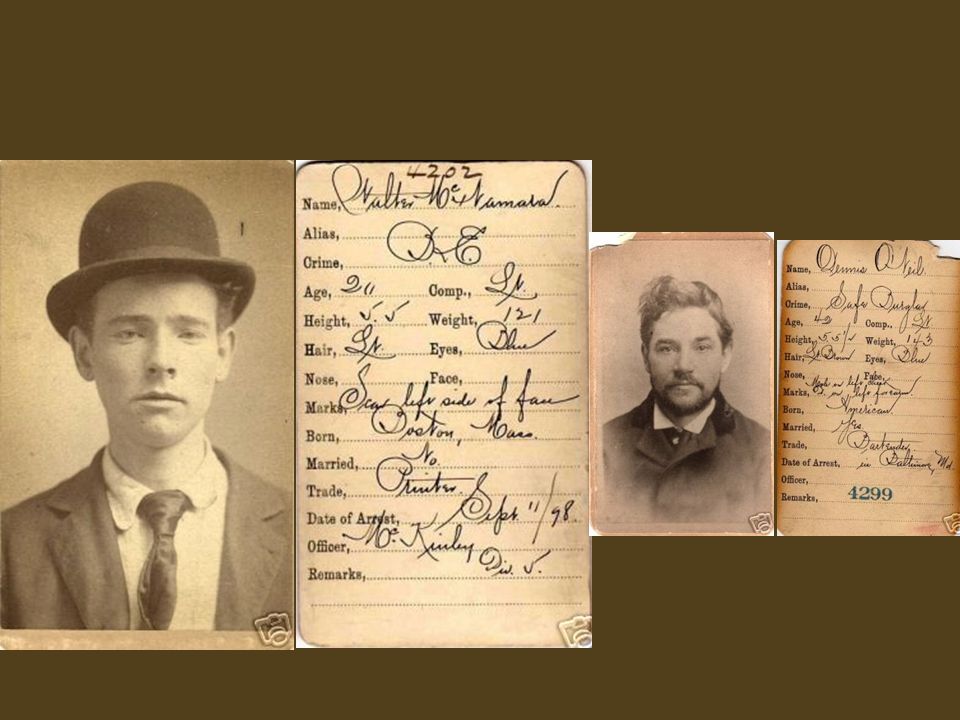 4202
Name, Walter McNamara.
Alias,
Crime,
Age, 20 Comp., Lt.
Height, 5.5 Weight, 121
Hair, Lt. Eyes, Blue
Nose, Face,
Marks, Scar left side of face
Born, Boston, Mass.
Married, No.
Trade, Printer.
Date of Arrest, Sept 11/98.
Officer, McKinley
Remarks, Div. 5.
Name, Dennis O'Neil.
Alias,
Crime, Safe Burglar
Age, 42 Comp., Lt
Height, 5.5½ Weight, 143
Hair, Lt Brown Eyes, Blue
Nose, Face,
Marks, on left forearm.
Born, American.
Married, Yes.
Trade, Bartender
Date of Arrest, in Baltimore, Md.
Officer,
Remarks, 4299